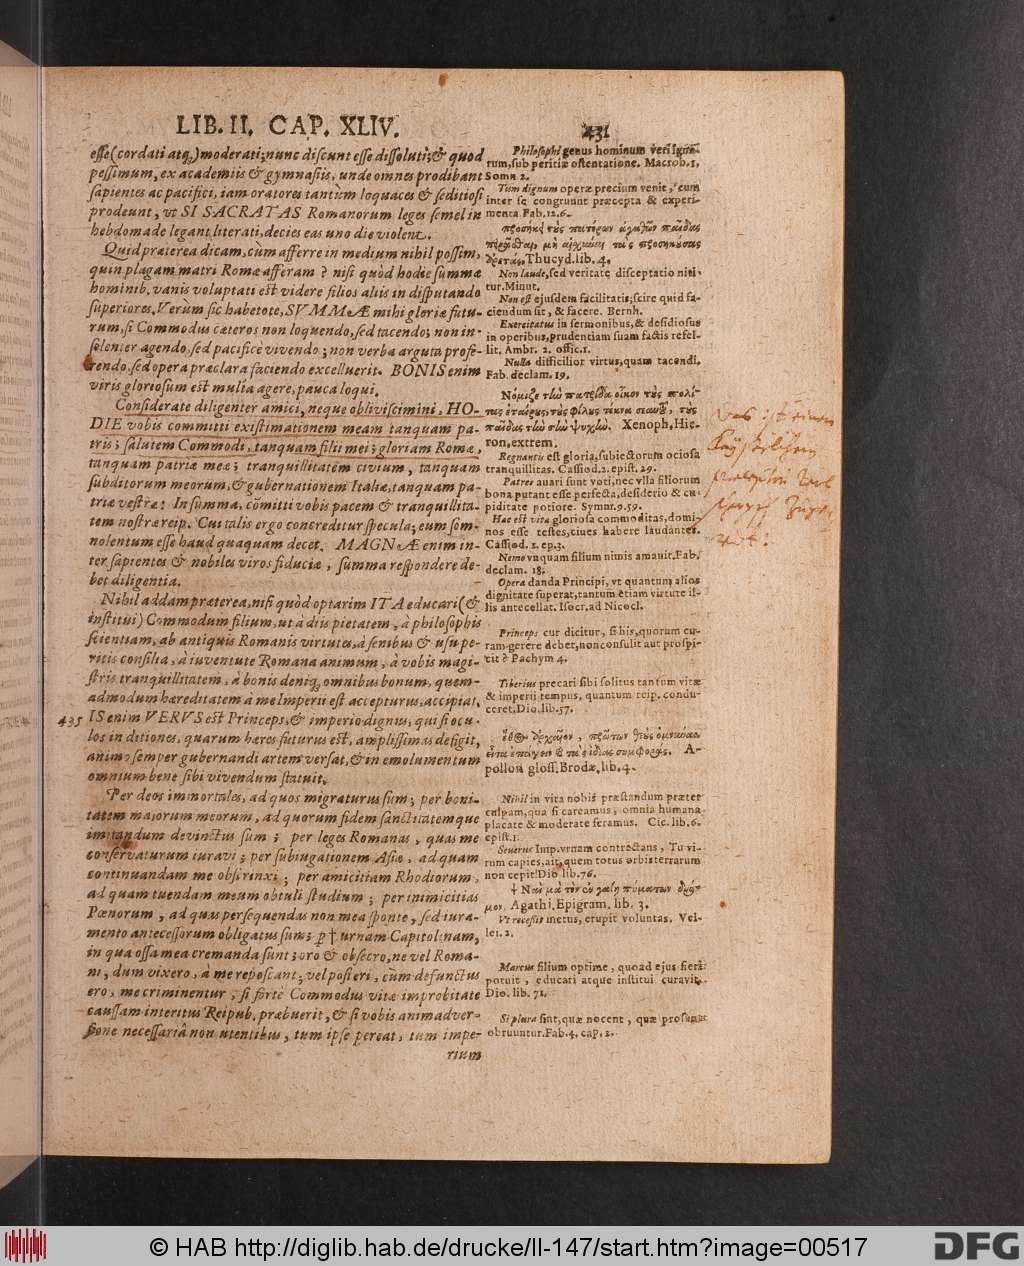 LIB. II. CAP. XLIV. 431
esse (cordati atq;) moderati; nunc discunt esse dissoluti; & quod
pessimum, ex academiis & gymnasiis, unde omnes prodibant
sapientes ac pacifici, iam oratores tantùm loquaces & seditiosi
prodeunt, vt SI SACRATAS Romanorum leges semel in
hebdomade legant literati, decies eas uno die violent.
Quid præterea dicam, cùm afferre in medium nihil possim,
quin plagam matri Romæ afferam? nisi quòd hodie summæ
hominib. vanis voluptati est videre filios aliis in disputando
superiores. Verùm sic habetote, SVMMÆ mihi gloriæ futu-
rum, si Commodus cæteros non loquendo, sed tacendo; non in-
solenter agendo, sed pacificè vivendo; non verba arguta profe-
rendo, sed opera præclara faciendo excelluerit. BONIS enim
viris gloriosum est multa agere, pauca loqui.
Considerate diligenter amici, neque obliviscimini, HO-
DIE vobis committi existimationem meam tanquam pa-
tris; salutem Commodi, tanquam filii mei; gloriam Romæ,
tanquam patriæ meæ; tranquillitatem civium, tanquam
subditorum meorum, & gubernationem Italiæ, tanquam pa-
triæ vestræ: In summa, cōmitti vobis pacem & tranquillita-
tem nostræ reip. Cui talis ergo concreditur specula; eum som-
nolentum esse haud quaquam decet. MAGNÆ enim in-
ter sapientes & nobiles viros fiduciæ, summa respondere de-
bet diligentia.
Nihil addam præterea, nisi quòd optarim ITA educari (&
institui) Commodum filium, ut à diis pietatem, à philosophis
scientiam, ab antiquis Romanis virtutes, à senibus & usu pe-
ritis consilia, à iuventute Romana animum, à vobis magi-
stris tranquillitatem, à bonis deniq; omnibus bonum, quem-
admodum hæreditatem à me Imperii est accepturus, accipiat.
435 IS enim VERVS est Princeps, & imperio dignus, qui si ocu-
los in ditiones, quarum hæres futurus est, amplissimas defigit,
animo semper gubernandi artem versat, & in emolumentum
omnium bene sibi vivendum statuit.
Per deos immortales, ad quos migraturus sum; per boni-
tatem maiorum meorum, ad quorum fidem sanctitatemque
imitandum devinctus sum; per leges Romanas, quas me
conservaturum iuravi; per subiugationem Asiæ, ad quam
continuandam me obstrinxi; per amicitiam Rhodiorum,
ad quam tuendam meum obtuli studium; per inimicitias
Pœnorum, ad quas persequendas non mea sponte, sed iura-
mento antecessorum obligatus sum; p † urnam Capitolinam,
in qua ossa mea cremanda sunt: oro & obsecro, ne vel Roma-
ni, dum vixero, à me reposcant; vel posteri, cùm defunctus
ero, me criminentur, si fortè Commodus vitæ improbitate
caussam interitus Reipub. præbuerit, & si vobis animadver-
sione necessariâ non utentibus, tum ipse pereat, tum impe-
rium
Philosophi genus hominum veri igna-
rum, sub periciæ ostentatione. Macrob. 1,
Somn 2.
Tum dignum operæ precium venit, cum
inter se congruunt præcepta & experi-
menta Fab. 12. 6.
Thucyd. lib. 4.
Non laude, sed veritate disceptatio niti-
tur. Minut.
Non est ejusdem facilitatis; scire quid fa-
ciendum sit, & facere. Bernh.
Exercitatus in sermonibus, & desidiosus
in operibus, prudentiam suam factis refel-
lit. Ambr. 2. offic. 1.
Nulla difficilior virtus, quam tacendi.
Fab. declam. 19.
Νόμιζε τὴν πατρίδα οἶκον τοὺς πολί-
τας ἑταίρους, τοὺς φίλους τέκνα σεαυτοῦ, τοὺς
παῖδας τὴν σὴν ψυχήν. Xenoph, Hie-
ron, extrem.
Regnantis est gloria, subiectorum ociosa
tranquillitas. Cassiod. 2. epist. 29.
Patres avari sunt voti, nec vlla filiorum
bona putant esse perfecta, desiderio & cu-
piditate potiore. Symm. 9. 59.
Hæc est vita gloriosa commoditas, domi-
nos esse testes, ciues habere laudantes.
Cassiod. 1. ep. 3.
Nemo vnquam filium nimis amauit. Fab.
declam. 18.
Opera danda Principi, vt quantum alios
dignitate superat, tantum etiam virtute il-
lis antecellat. Isocr. ad Nicocl.
Princeps cur dicitur, si his, quorum cu-
ram gerere debet, non consulit aut prospi-
cit? Pachym 4.
Tiberius precari sibi solitus tantum vitæ
& imperii tempus, quantum reip. condu-
ceret. Dio. lib. 57.
A-
pollon gloss. Brodæ. lib. 4.
Nihil in vita nobis præstandum præter
culpam, qua si careamus, omnia humana
placate & moderate feramus. Cic. lib. 6.
epist. 1.
Severus Imp. vrnam contrectans, Tu vi-
rum capies, ait, quem totus orbis terrarum
non cepit! Dio lib. 76.
Agathi. Epigram. lib. 3.
Vt recessit metus, erupit voluntas. Vel-
lei. 2.
Marcus filium optime, quoad ejus fieri
potuit, educari atque institui curavit.
Dio. lib. 71.
Si plura sint, quæ nocent, quæ prosunt
obruuntur. Fab. 4. cap. 2.
© HAB http://diglib.hab.de/drucke/ll-147/start.htm?image=00517
DFG